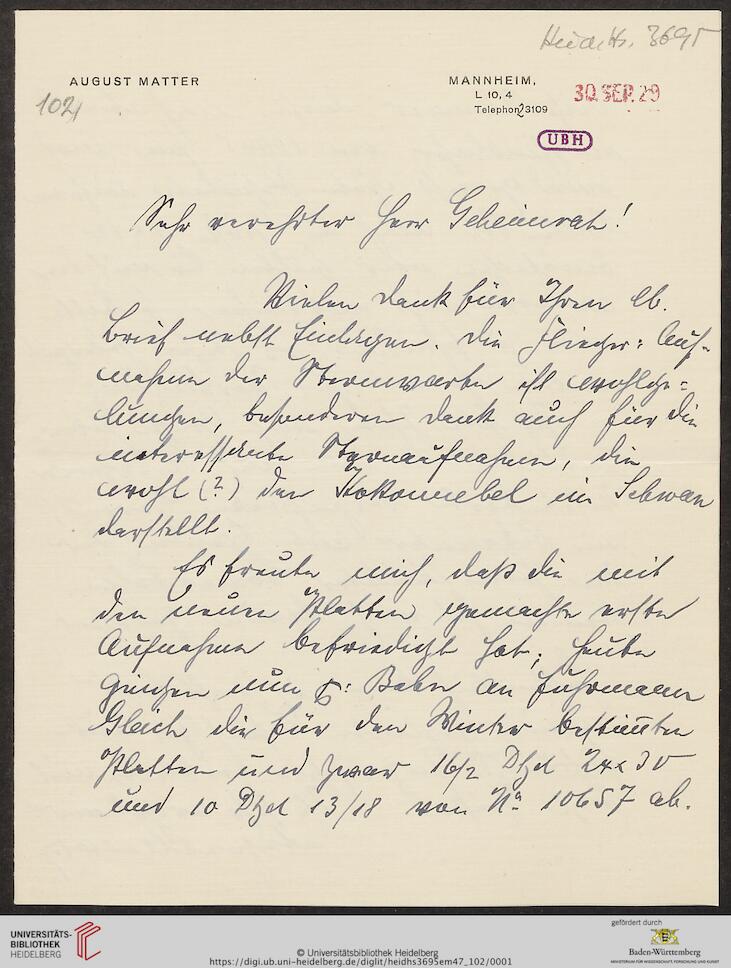 Heid. Hs. 3695
AUGUST MATTER
MANNHEIM,
L 10, 4
Telephon 23109
30. SEP. 29
102,
UBH
Sehr verehrter Herr Geheimrat!
Vielen Dank für Ihren lb.
Brief nebst Einlagen. Die Flieger: Auf-
nahme der Sternwarte ist wohlge=
lungen, besonderen Dank auch für die
interessante Sternaufnahme, die
wohl (?) den Kokonnebel im Schwan
darstellt.
Es freute mich, daß die mit
den neuen Platten gemachte erste
Aufnahme befriedigt hat; heute
gingen nun p: Bahn an Fuhrmann
Gleich die für den Winter bestimten
Platten und zwar 16/2 Dtzd 24x30
und 10 Dtzd 13/18 von No 10657 ab.
UNIVERSITÄTS-
BIBLIOTHEK
HEIDELBERG
© Universitätsbibliothek Heidelberg
https://digi.ub.uni-heidelberg.de/diglit/heidhs3695em47_102/0001
gefördert durch
Baden-Württemberg
MINISTERIUM FÜR WISSENSCHAFT, FORSCHUNG UND KUNST